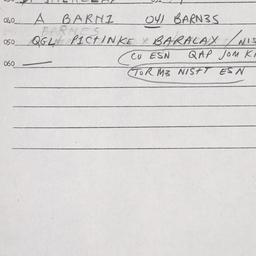 040 A BARNI 041 BARN3S
050 QGL PICTINKE BARALAX / NIS
CU ESN QAP JOM K
060 TOR M3 NIST ESN